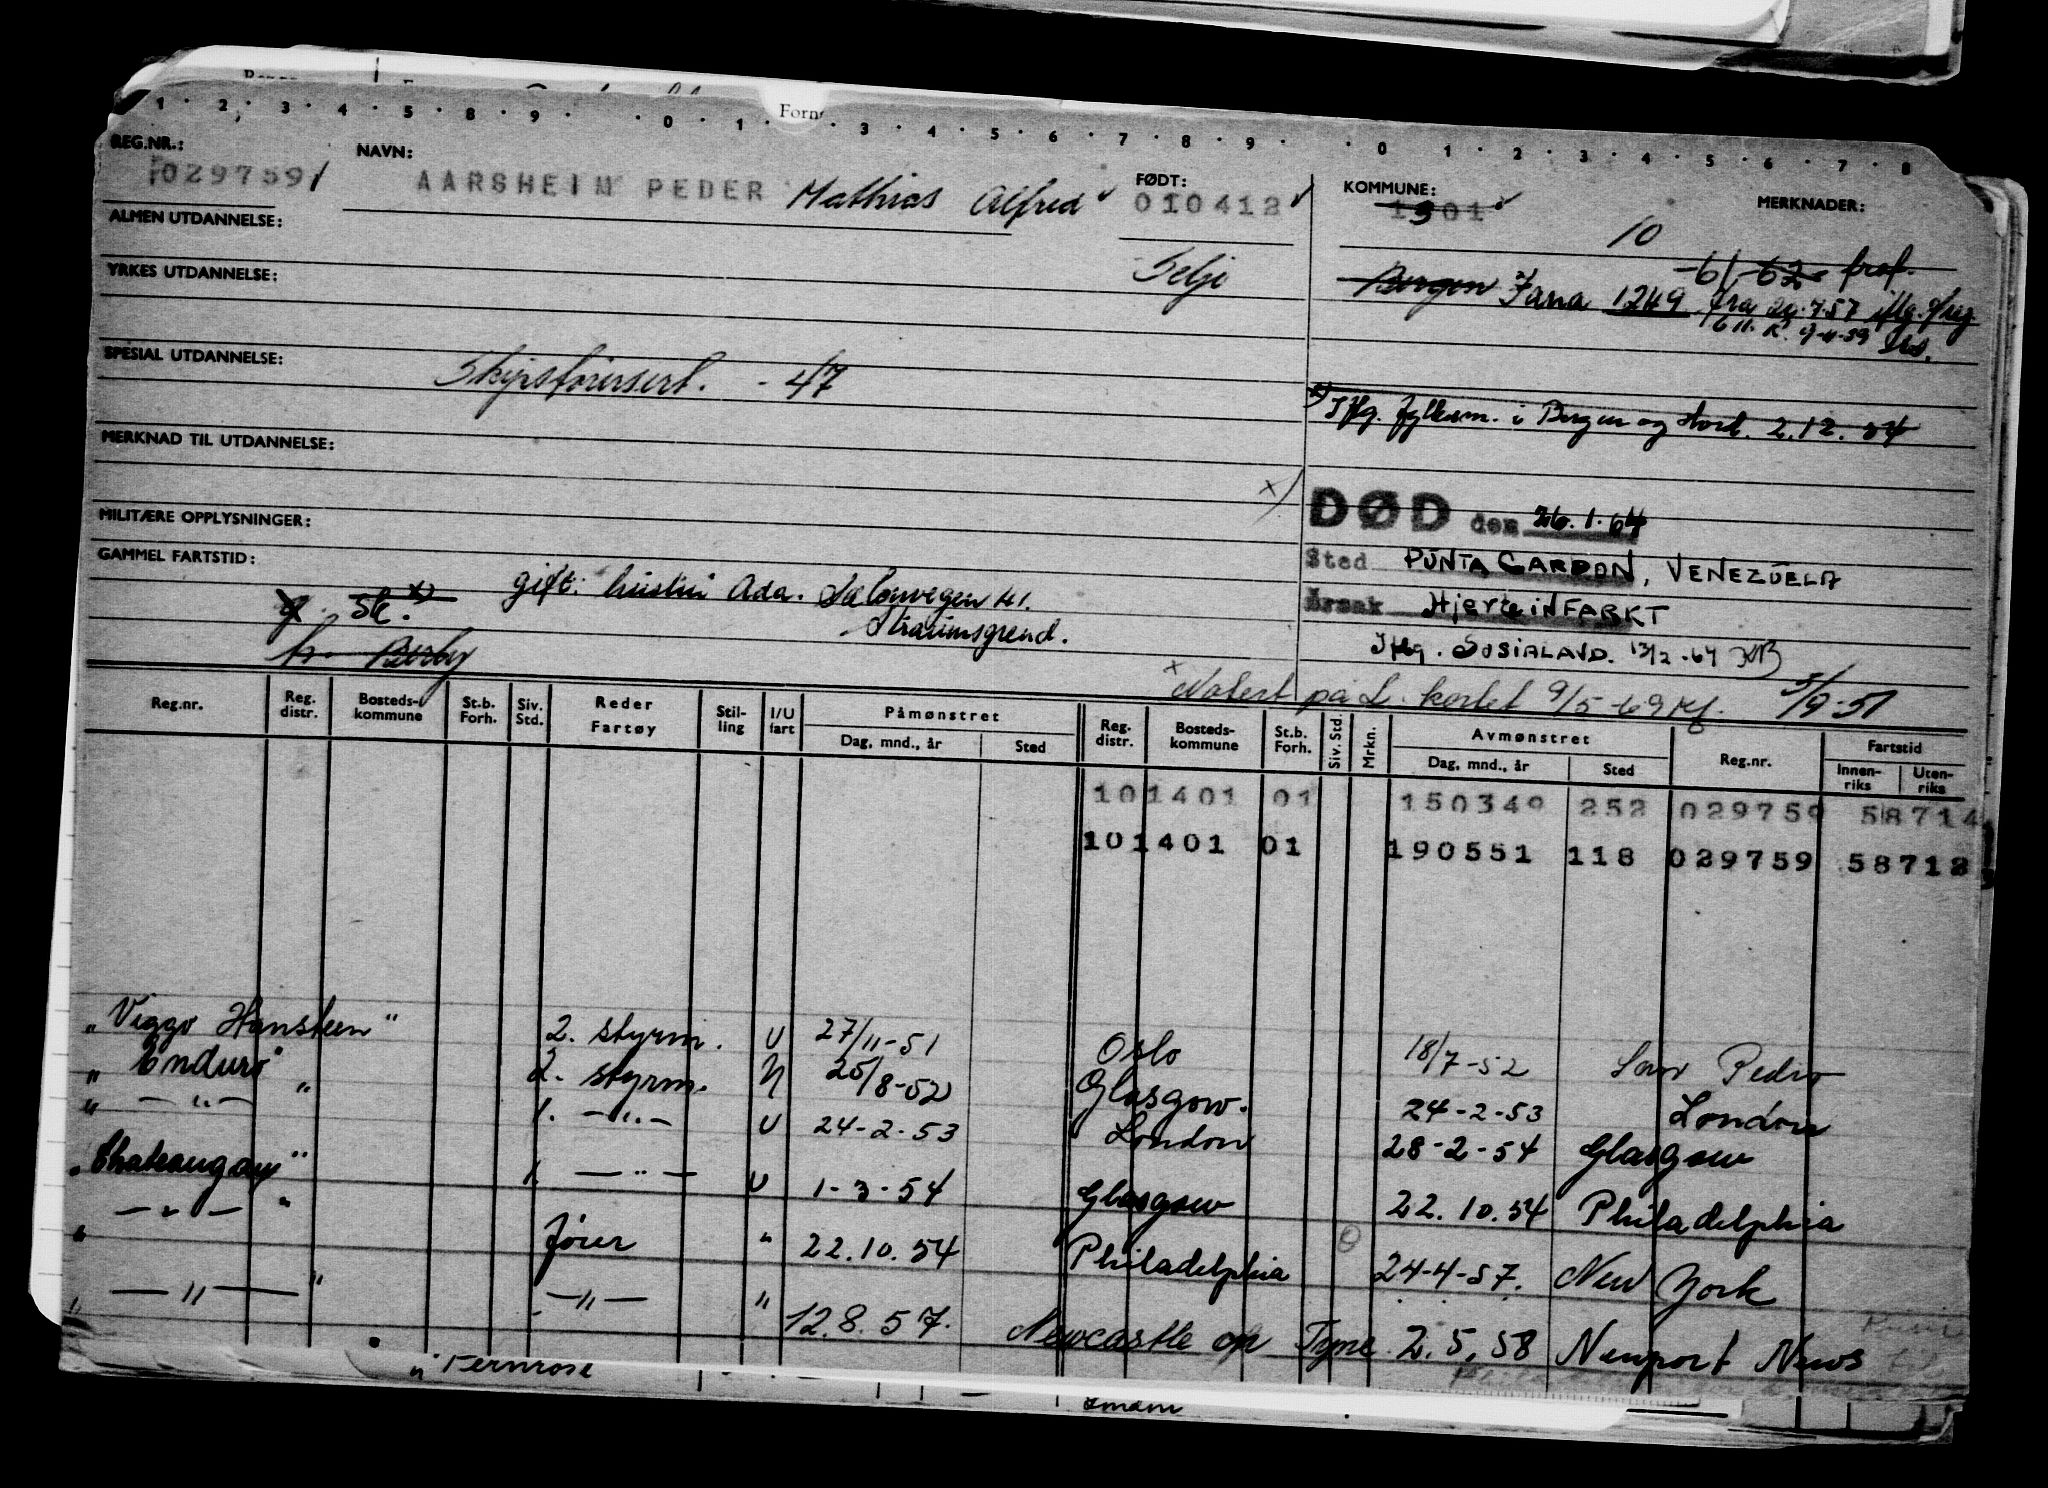 1 · 2 · 3 · 4 · 5 · 8 · 9 · · 0 · 1 · Forn 3 · 4 · 5 · 6 · 7 · 8 · 9 · · 0 1 · 2 · 3 · 4 · 5 · 6 · 7 · 8
REG.NR.: NAVN: FØDT: KOMMUNE: MERKNADER:
029759 AARSHEIM PEDER Mathias Alfred 010412 1301
10
ALMEN UTDANNELSE:
Selje
-61 -62
YRKES UTDANNELSE:
Bergen Fana 1249 fra 20.7.57
SPESIAL UTDANNELSE:
Skipsførersert. - 47
x) Iflg. fylkesm. i Bergen og Hord. 2.12.54
MERKNAD TIL UTDANNELSE:
x)
DØD den 26.1.64
MILITÆRE OPPLYSNINGER:
Sted PUNTA CARDON, VENEZUELA
GAMMEL FARTSTID:
g. sk. x) gift: hustru Ada.
Årsak HJERTEINFARKT
Straumsgrend.
Iflg. SOSIALAVD. 13/2-64 KB
x Notert på L. kortet 9/5-69 5/9-51
Reg.nr. Reg. distr. Bosteds- kommune St.b. Forh. Siv. Std. Reder Fartøy Stil- ling I/U fart Påmønstret Dag, mnd., år Sted Reg. distr. Bosteds- kommune St.b. Forh. Siv. Std. Mrkn. Avmønstret Dag, mnd., år Sted Reg.nr. Fartstid Innen- riks Uten- riks
101401 01 150349 252 029759 58714
101401 01 190551 118 029759 58712
"Viggo Hansteen" 2. styrm. U 27/11-51 Oslo 18/7-52 San Pedro
"Enduro" 2. styrm. U 25/8-52 Glasgow. 24-2-53 London
" — " — " 1. — " — U 24-2-53 London 28-2-54 Glasgow
"Chateaugay" 1. — " — U 1-3-54 Glasgow 22.10.54 Philadelphia
" — " — " fører " 22.10.54 Philadelphia 24-4-57. New York
" — " — " — " — " 12.8.57. Newcastle on Tyne 2.5.58 Newport News
" Fernrose